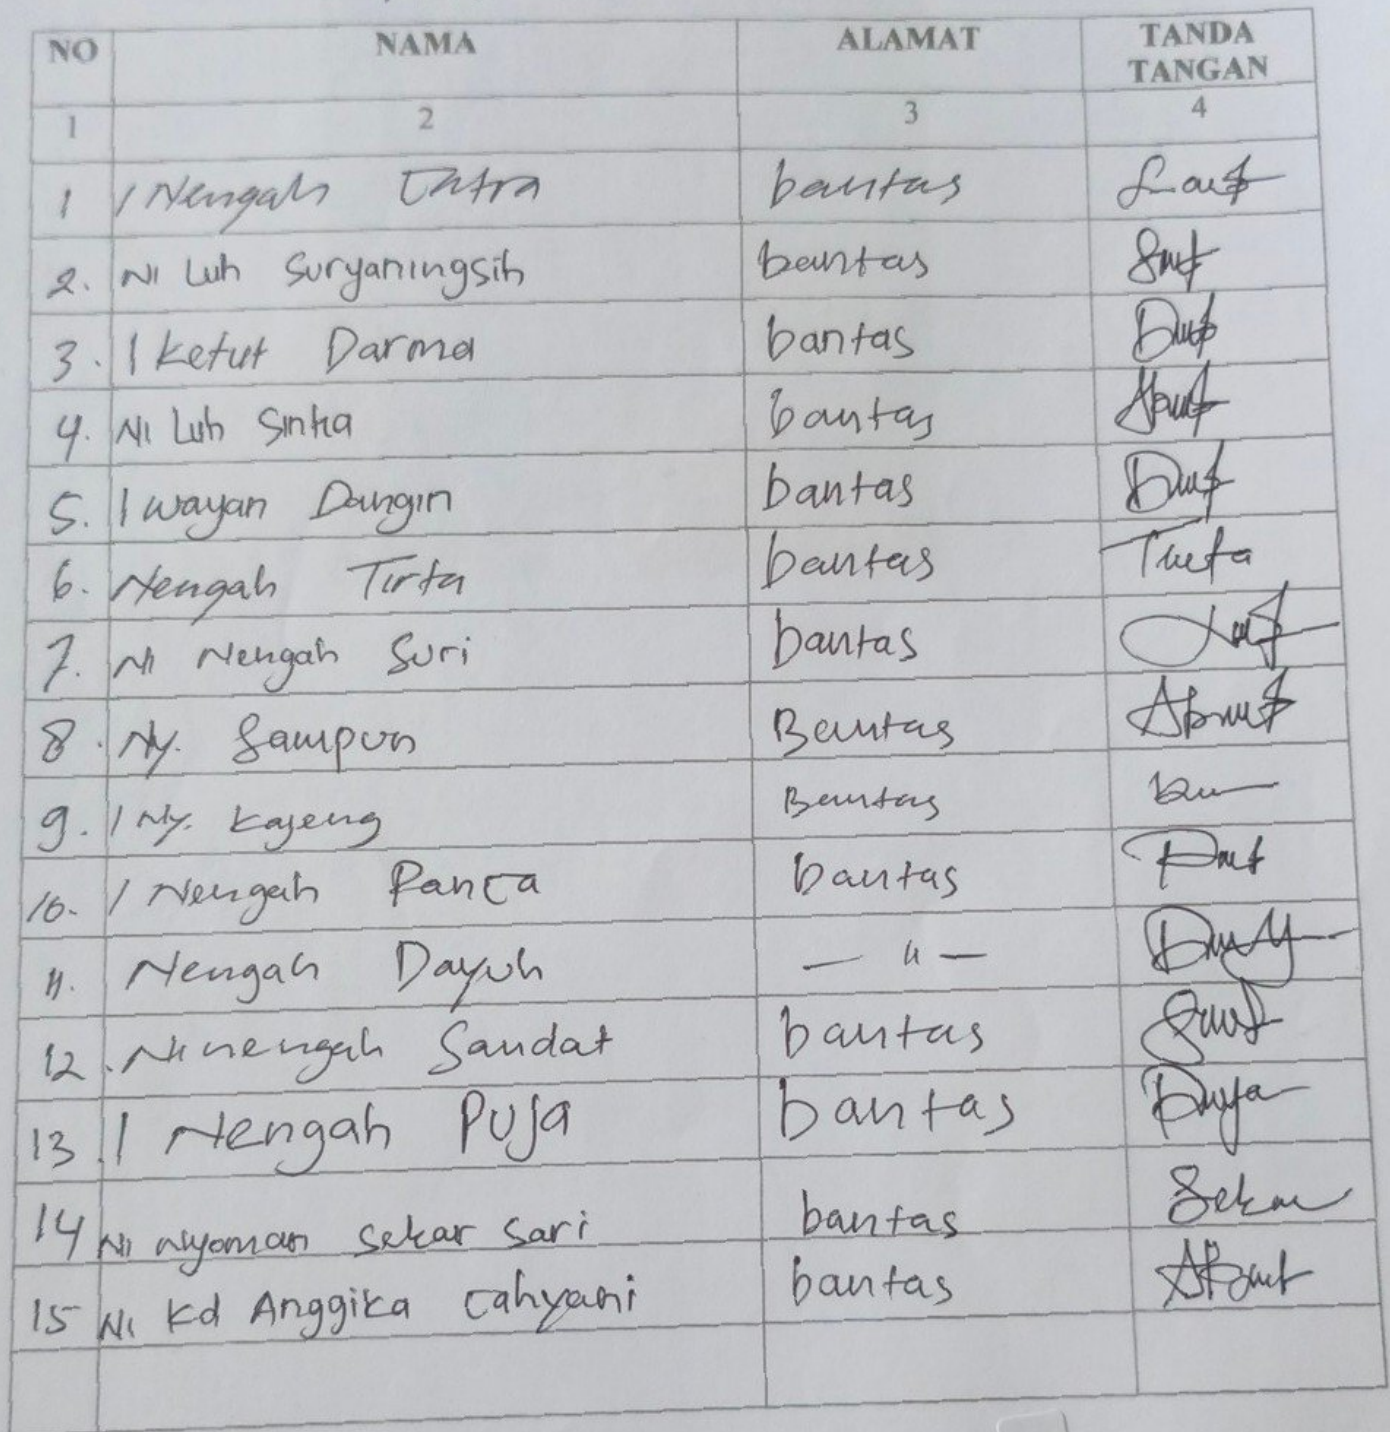 NO NAMA ALAMAT TANDA TANGAN
1 2 3 4
1 I Nengah Catra bantas
2. Ni Luh Suryaningsih bantas
3. I Ketut Darma bantas
4. Ni Luh Sinta bantas
5. I wayan Dangin bantas
6. Nengah Tirta bantas Tirta
7. Ni Nengah Suri bantas
8. Ny. Sampun Bantas
9. I Ny. Kajeng Bantas
10. I Nengah Panca bantas
11. Nengah Dayuh — 11 —
12. Ni nengah Sandat bantas
13 I Nengah Puja bantas
14 Ni Nyoman Sekar Sari bantas Sekar
15 Ni Kd Anggika Cahyani bantas